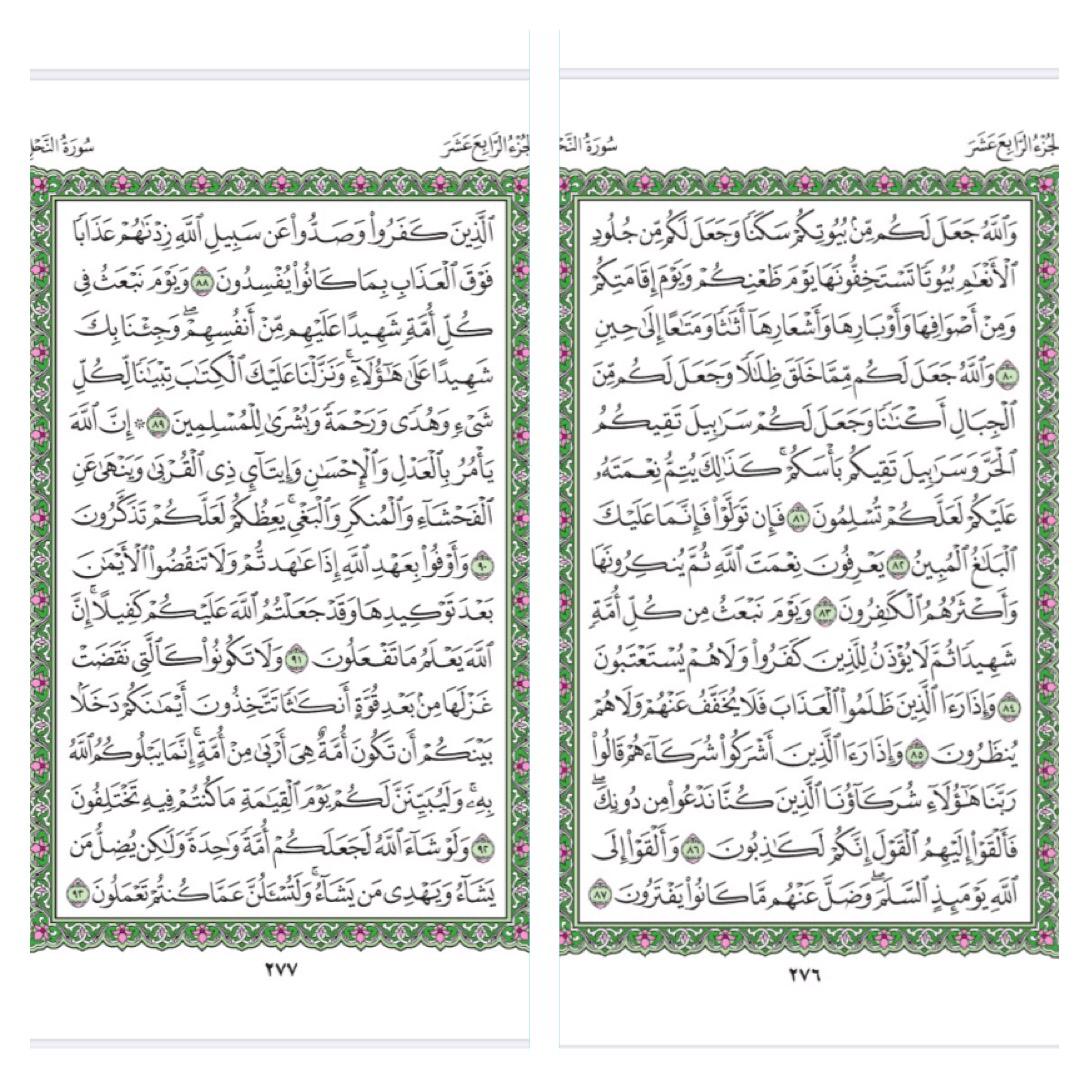 الجزء الرابع عشر
سورة النحل
وَٱللَّهُ جَعَلَ لَكُم مِّنۢ بُيُوتِكُمْ سَكَنًا وَجَعَلَ لَكُم مِّن جُلُودِ
ٱلْأَنْعَٰمِ بُيُوتًا تَسْتَخِفُّونَهَا يَوْمَ ظَعْنِكُمْ وَيَوْمَ إِقَامَتِكُمْ
وَمِنْ أَصْوَافِهَا وَأَوْبَارِهَا وَأَشْعَارِهَآ أَثَٰثًا وَمَتَٰعًا إِلَىٰ حِينٍ
٨٠ وَٱللَّهُ جَعَلَ لَكُم مِّمَّا خَلَقَ ظِلَٰلًا وَجَعَلَ لَكُم مِّنَ
ٱلْجِبَالِ أَكْنَٰنًا وَجَعَلَ لَكُمْ سَرَٰبِيلَ تَقِيكُمُ
ٱلْحَرَّ وَسَرَٰبِيلَ تَقِيكُم بَأْسَكُمْ ۚ كَذَٰلِكَ يُتِمُّ نِعْمَتَهُۥ
عَلَيْكُمْ لَعَلَّكُمْ تُسْلِمُونَ ٨١ فَإِن تَوَلَّوْا۟ فَإِنَّمَا عَلَيْكَ
ٱلْبَلَٰغُ ٱلْمُبِينُ ٨٢ يَعْرِفُونَ نِعْمَتَ ٱللَّهِ ثُمَّ يُنكِرُونَهَا
وَأَكْثَرُهُمُ ٱلْكَٰفِرُونَ ٨٣ وَيَوْمَ نَبْعَثُ مِن كُلِّ أُمَّةٍ
شَهِيدًا ثُمَّ لَا يُؤْذَنُ لِلَّذِينَ كَفَرُوا۟ وَلَا هُمْ يُسْتَعْتَبُونَ
٨٤ وَإِذَا رَءَا ٱلَّذِينَ ظَلَمُوا۟ ٱلْعَذَابَ فَلَا يُخَفَّفُ عَنْهُمْ وَلَا هُمْ
يُنظَرُونَ ٨٥ وَإِذَا رَءَا ٱلَّذِينَ أَشْرَكُوا۟ شُرَكَآءَهُمْ قَالُوا۟
رَبَّنَا هَٰٓؤُلَآءِ شُرَكَآؤُنَا ٱلَّذِينَ كُنَّا نَدْعُوا۟ مِن دُونِكَ ۖ
فَأَلْقَوْا۟ إِلَيْهِمُ ٱلْقَوْلَ إِنَّكُمْ لَكَٰذِبُونَ ٨٦ وَأَلْقَوْا۟ إِلَى
ٱللَّهِ يَوْمَئِذٍ ٱلسَّلَمَ ۖ وَضَلَّ عَنْهُم مَّا كَانُوا۟ يَفْتَرُونَ ٨٧
٢٧٦
الجزء الرابع عشر
سورة النحل
ٱلَّذِينَ كَفَرُوا۟ وَصَدُّوا۟ عَن سَبِيلِ ٱللَّهِ زِدْنَٰهُمْ عَذَابًا
فَوْقَ ٱلْعَذَابِ بِمَا كَانُوا۟ يُفْسِدُونَ ٨٨ وَيَوْمَ نَبْعَثُ فِى
كُلِّ أُمَّةٍ شَهِيدًا عَلَيْهِم مِّنْ أَنفُسِهِمْ ۖ وَجِئْنَا بِكَ
شَهِيدًا عَلَىٰ هَٰٓؤُلَآءِ ۚ وَنَزَّلْنَا عَلَيْكَ ٱلْكِتَٰبَ تِبْيَٰنًا لِّكُلِّ
شَىْءٍ وَهُدًى وَرَحْمَةً وَبُشْرَىٰ لِلْمُسْلِمِينَ ٨٩ ۞ إِنَّ ٱللَّهَ
يَأْمُرُ بِٱلْعَدْلِ وَٱلْإِحْسَٰنِ وَإِيتَآئِ ذِى ٱلْقُرْبَىٰ وَيَنْهَىٰ عَنِ
ٱلْفَحْشَآءِ وَٱلْمُنكَرِ وَٱلْبَغْىِ ۚ يَعِظُكُمْ لَعَلَّكُمْ تَذَكَّرُونَ
٩٠ وَأَوْفُوا۟ بِعَهْدِ ٱللَّهِ إِذَا عَٰهَدتُّمْ وَلَا تَنقُضُوا۟ ٱلْأَيْمَٰنَ
بَعْدَ تَوْكِيدِهَا وَقَدْ جَعَلْتُمُ ٱللَّهَ عَلَيْكُمْ كَفِيلًا ۚ إِنَّ
ٱللَّهَ يَعْلَمُ مَا تَفْعَلُونَ ٩١ وَلَا تَكُونُوا۟ كَٱلَّتِى نَقَضَتْ
غَزْلَهَا مِنۢ بَعْدِ قُوَّةٍ أَنكَٰثًا تَتَّخِذُونَ أَيْمَٰنَكُمْ دَخَلًۢا
بَيْنَكُمْ أَن تَكُونَ أُمَّةٌ هِىَ أَرْبَىٰ مِنْ أُمَّةٍ ۚ إِنَّمَا يَبْلُوكُمُ ٱللَّهُ
بِهِۦ ۚ وَلَيُبَيِّنَنَّ لَكُمْ يَوْمَ ٱلْقِيَٰمَةِ مَا كُنتُمْ فِيهِ تَخْتَلِفُونَ
٩٢ وَلَوْ شَآءَ ٱللَّهُ لَجَعَلَكُمْ أُمَّةً وَٰحِدَةً وَلَٰكِن يُضِلُّ مَن
يَشَآءُ وَيَهْدِى مَن يَشَآءُ ۚ وَلَتُسْـَٔلُنَّ عَمَّا كُنتُمْ تَعْمَلُونَ ٩٣
٢٧٧